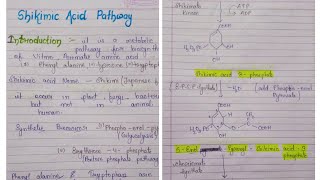 Shikimic Acid Pathway
Introduction :- it is a metabolic
pathway for biosynthesis
of Vitan Aromatic amino acid
(i) Phenyl alanine (ii) tyrosine (iii) tryptophan
Shikimic Acid Name - Shikim (Japanese
it occur in plant, fungi, bacteria
but not in animal,
human.
Synthetic Precursors
(i) Phospho-enol-py
(Glycolysis)
(ii) Erythrose-4-phosphate
Pentose phosphate pathway
Phenyl alanine & Tryptophan are
Shikimate
Kinase
ATP
ADP
COOH
H2O3P
OH
OH
Shikimic acid 3-phosphate
E.P.S.P Synthase
[add Phospho-enol
Pyruvate]
COOH
H2O3P
COOH
OH
5-Enol Pyruvyl Shikimic acid-3
phosphate
Synthase